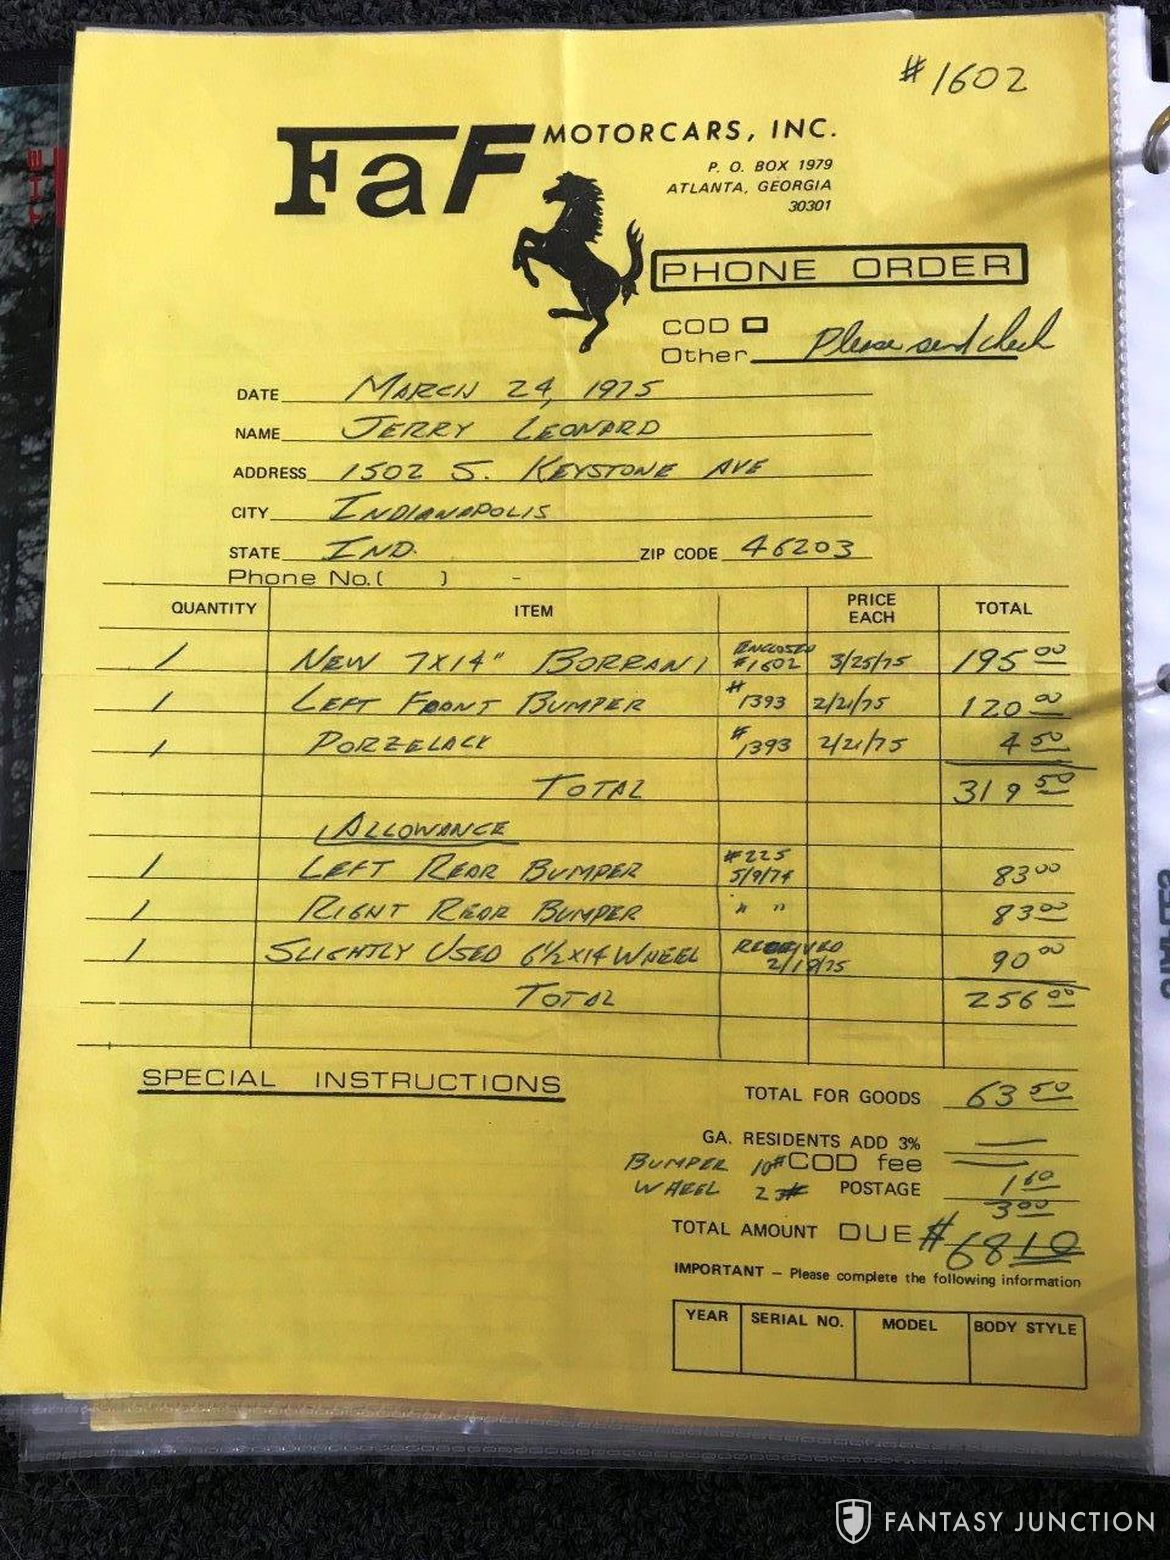 #1602
FaF MOTORCARS, INC.
P. O. BOX 1979
ATLANTA, GEORGIA
30301
PHONE ORDER
COD
Other Please send check
DATE MARCH 24, 1975
NAME JERRY LEONARD
ADDRESS 1502 S. KEYSTONE AVE
CITY INDIANAPOLIS
STATE IND. ZIP CODE 46203
Phone No. ( ) -
QUANTITY ITEM PRICE EACH TOTAL
1 NEW 7X14" BORRANI ENCLOSED #1602 3/25/75 195 00
1 LEFT FRONT BUMPER #1393 2/21/75 120 00
1 PORZELACK #1393 2/21/75 4 50
TOTAL 319 50
ALLOWANCE
1 LEFT REAR BUMPER #225 5/9/74 83 00
1 RIGHT REAR BUMPER " " 83 00
1 SLIGHTLY USED 6½X14 WHEEL RECEIVED 2/18/75 90 00
TOTAL 256 00
SPECIAL INSTRUCTIONS
TOTAL FOR GOODS 63 50
GA. RESIDENTS ADD 3% —
BUMPER 10# COD fee —
WHEEL POSTAGE 1 60
3 00
TOTAL AMOUNT DUE #68 10
IMPORTANT — Please complete the following information
YEAR SERIAL NO. MODEL BODY STYLE
FANTASY JUNCTION